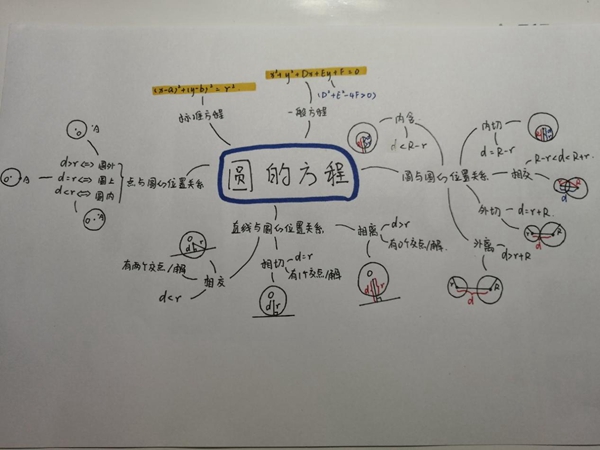 圆的方程
(x-a)²+(y-b)²=r²
标准方程
x²+y²+Dx+Ey+F=0
(D²+E²-4F>0)
一般方程
点与圆的位置关系
d>r⇔圆外
d=r⇔圆上
d<r⇔圆内
A
A
A
直线与圆的位置关系
相交
有两个交点/解
d<r
d r
相切
d=r
有1个交点/解
O
d r
相离
d>r
有0个交点/解
O
d r
圆与圆的位置关系
内含
d<R-r
内切
d=R-r
相交
R-r<d<R+r
d
外切
d=r+R
r
R
d
外离
d>r+R
r
R
d